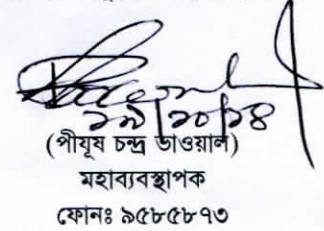 ২৯/১০/১৪
(পীযূষ চন্দ্র ডাওয়াল)
মহাব্যবস্থাপক
ফোনঃ ৯৫৮৫৮৭৩